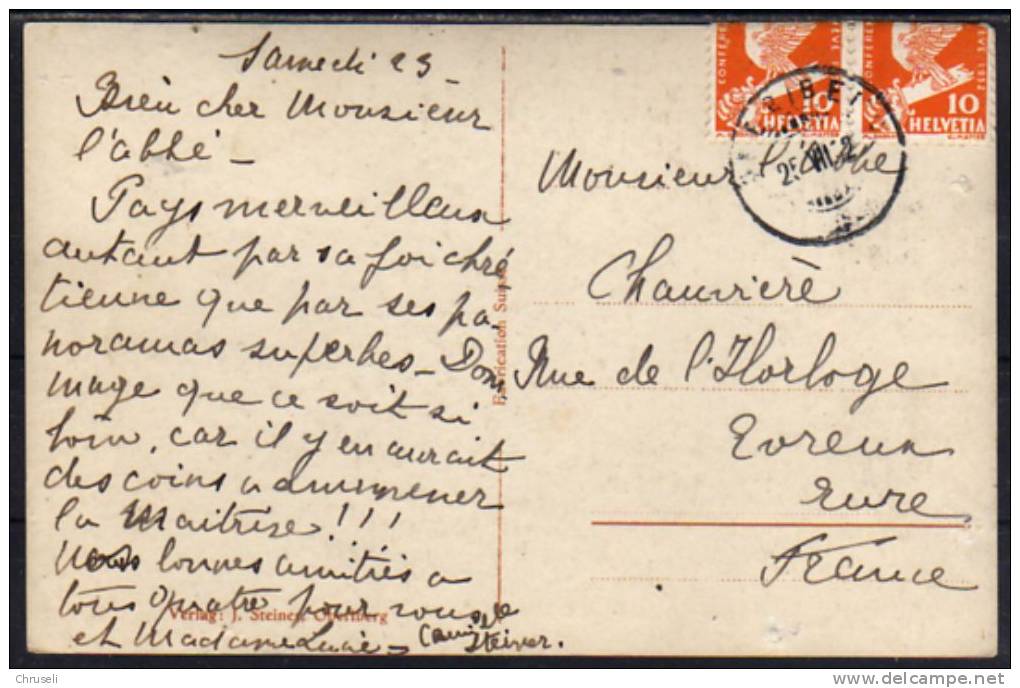 Samedi 23
Bien cher Monsieur
l'abbé –
Pays merveilleux
autant par sa foi chré
tienne que par ses pa
noramas superbes – Dom
mage que ce soit si
loin, car il y en aurait
des coins a ammener
la Maitrise!!!
nos bonnes amitiés a
tous quatre pour vous
et Madame Lucie –
Steiner.
Verlag: J. Steiner, Oberiberg
Fabrication Suisse
CONFERE
10
HELVETIA
CONFERE
10
HELVETIA
Monsieur l'abbé
Chauvièrè
Rue de l'Horloge
Evreux
Eure
France
Chruseli
www.delcampe.net